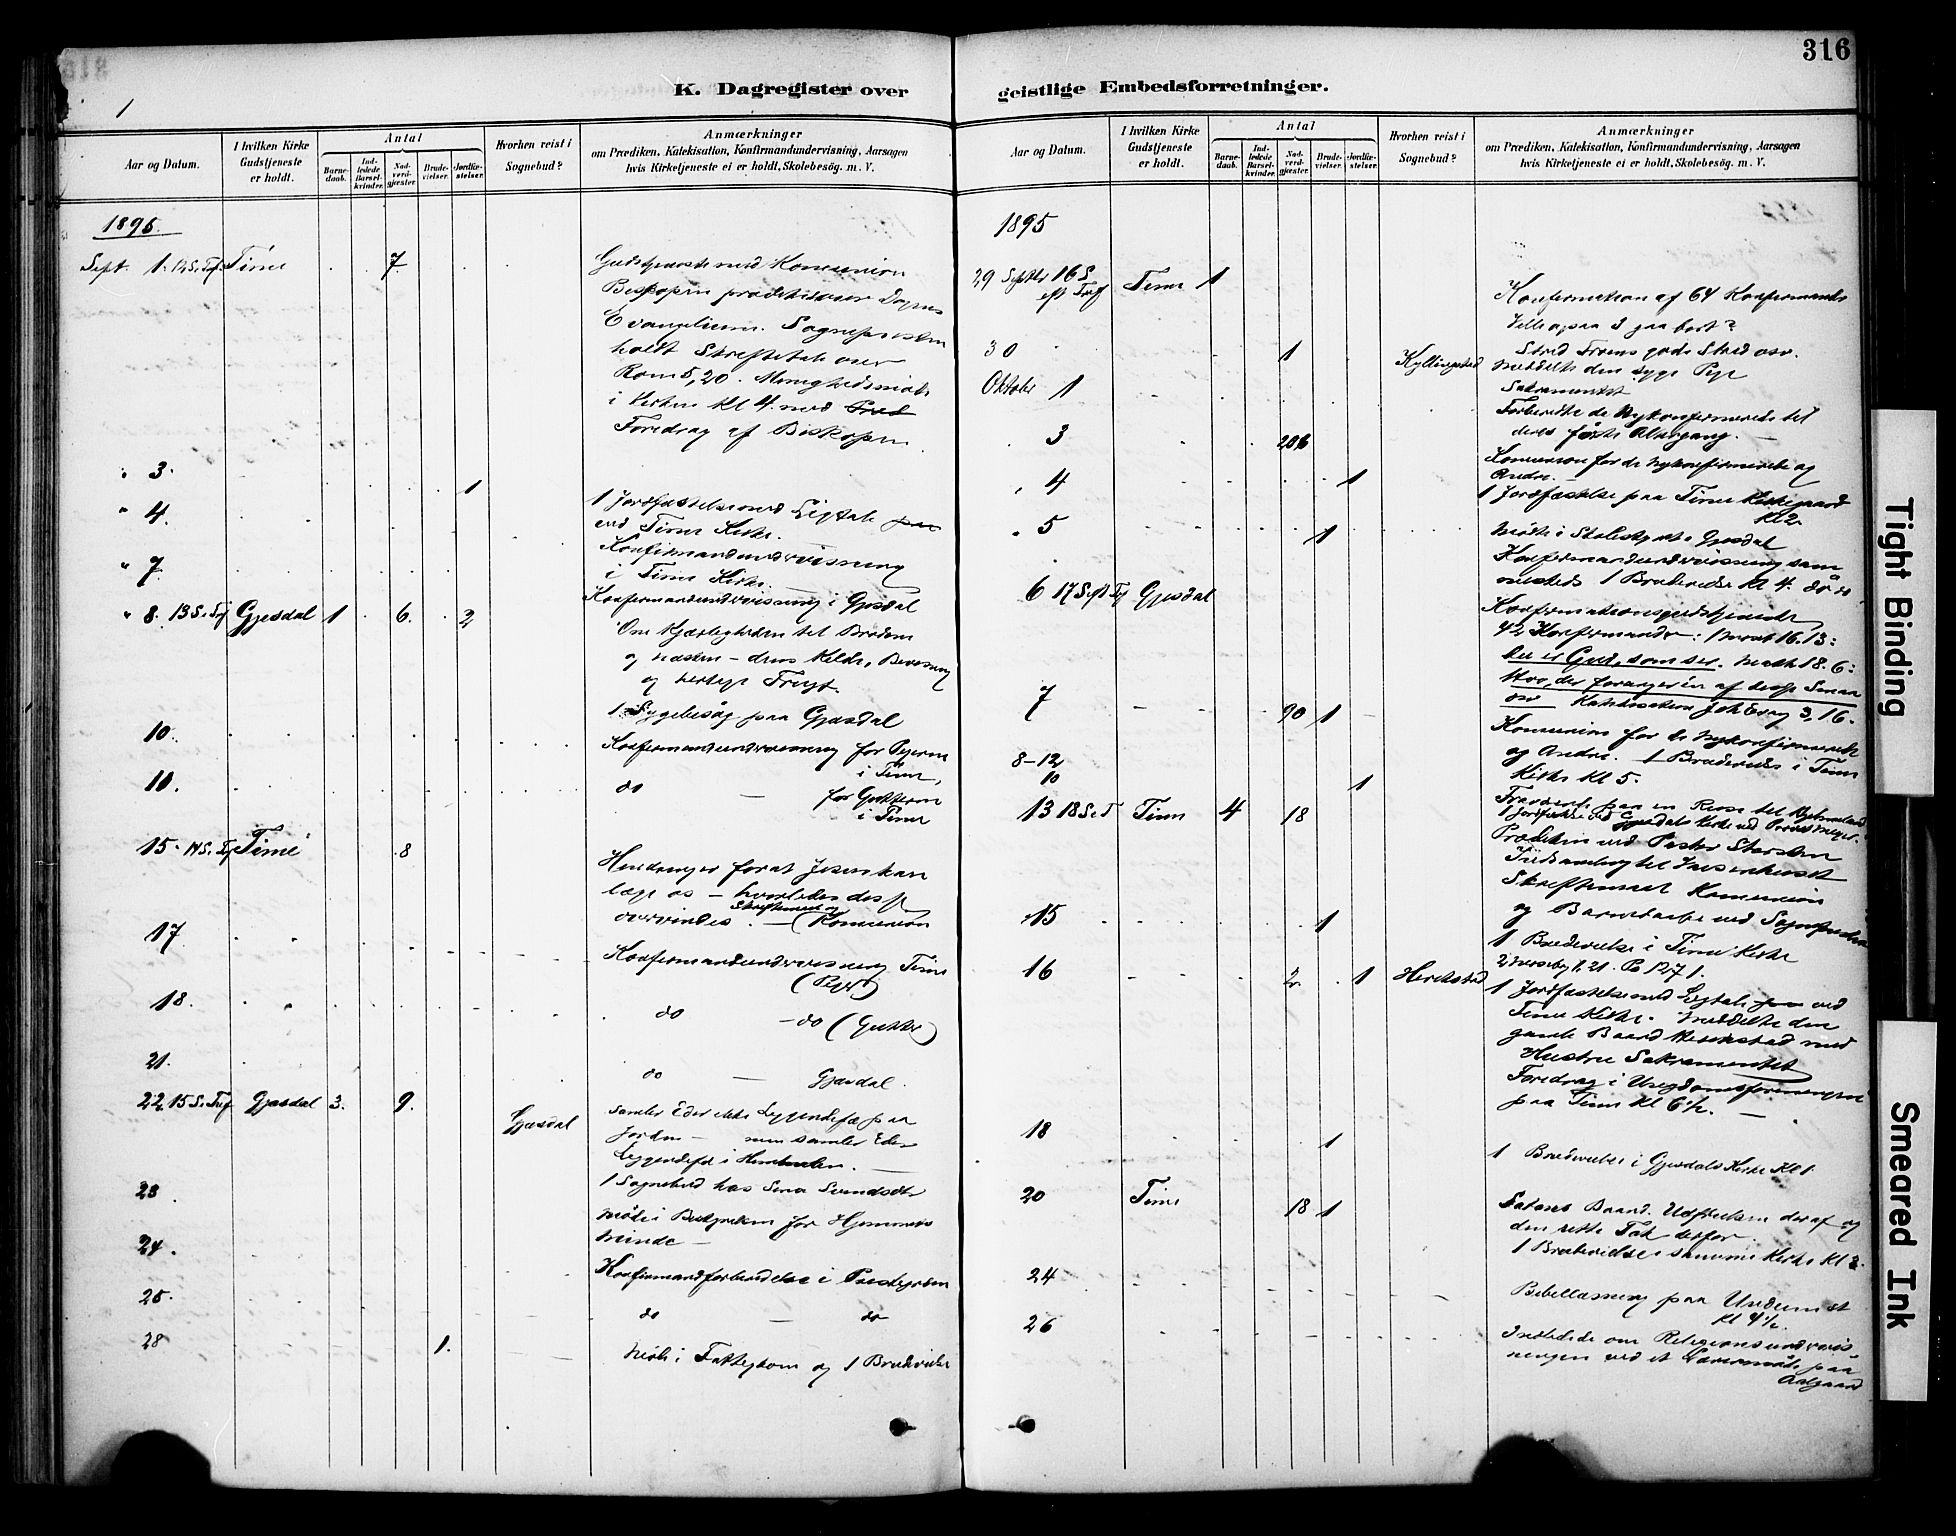 316
K. Dagregister over
geistlige Embedsforretninger.
1
Aar og Datum.
I hvilken Kirke Gudstjeneste er holdt.
Antal
Barnedaab.
Indledede Barselkvinder.
Nadverdgjæster.
Brudevielser.
Jordfæstelser.
Hvorhen reist i Sognebud?
Anmærkninger
om Prædiken, Katekisation, Konfirmandundervisning, Aarsagen
hvis Kirketjeneste ei er holdt, Skolebesög. m. V.
1895.
Sept. 1. 12 S. Tref. Time 7 Gudstjeneste med Komunion
Biskopen Dagens
Evangelium. Sognepresten
holdt Skriftetale over
Rom 5,20. Menighedsmøde
i Kirken Kl 4 med
Foredrag af Biskopen
" 3. 1
1 Jordfæstelse med Ligtale
ved Time Kirke.
" 4. Konfirmandundervisning
i Time Kirke.
" 7. Konfirmandundervisning i Gjesdal
" 8. 13 S. Tref Gjesdal 1 6. 2
Om Kjærligheden til
og næsten – dens Kilde,
og Frugt.
1 Sygebesøg paa Gjesdal
10. Konfirmandundervisning for Pigerne
i Time,
10. do — for Gutterne
i Time
15. 14 S. Tref Time 8
Hindringer forat Jesus kan
læge os – hvorledes disse
overvindes. – (Skriftemaal og Komunion
17. Konfirmandundervisning Time
(Piger)
18. do – do (Gutter)
21. do — Gjesdal.
22. 15 S. Tref Gjesdal 3. 9. Gjesdal
Samler Eder ikke Liggendefæ paa
Jorden – men samler Eder
Liggendefæ i Himmelen. —
1 Sognebud hos
23. Møde i for Hjemmets
24. Konfirmandforberedelse i
25. do — do
28 1. Møde i og 1 Brudevielse
Aar og Datum.
I hvilken Kirke Gudstjeneste er holdt.
Antal
Barnedaab.
Indledede Barselkvinder.
Nadverdgjæster.
Brudevielser.
Jordfæstelser.
Hvorhen reist i Sognebud?
Anmærkninger
om Prædiken, Katekisation, Konfirmandundervisning, Aarsagen
hvis Kirketjeneste ei er holdt, Skolebesög. m. V.
1895
29 Septbr 16 S.
eft Tref Time 1
Konfirmation af 64 Konfirmander
Ville ogsaa I gaa bort?
Strid Troens gode Strid osv.
30 1 Kyllingstad Meddelte den syge Pige
Sakramentet
Oktober 1 Forberedte de Nykonfirmerede til
deres første Altergang. —
3 206
Komunion for de nykonfirmerede og
Andre. —
4 1
1 Jordfæstelse paa Time Kirkegaard
Kl 2
5 1
Møde i Gjesdal
Konfirmandundervisning sam
mesteds 1 Brudevielse Kl 4.
6 17 S eft Tref Gjesdal
Konfirmationsgudstjeneste
42 Konfirmander: 1 Moseb 16.13:
Gud, som ser. Math 18.6:
Hvo, der forarger en af disse Smaa
osv Katekisation Joh Evang 3,16.
7 90 1
Komunion for de Nykonfirmerede
og Andre. 1 Brudevielse i Time
Kirke Kl 5.
8–12 Fraværende paa en Reise til
10 1
1 Jordfæstelse ved Gjesdal Kirke ved
13 18 S. e T Time 4 18
Prædiken ved Pastor
Skriftemaal Komunion
og Barnedaab ved Sognepresten
15 1 1 Brudevielse i Time Kirke
16 2 1
1 Jordfæstelse med Ligtale ved
Time Kirke. Meddelte den
gamle med
Hustru Sakramentet
Foredrag i Ungdomsforeningen
paa Time Kl 6½. —
18 1
1 Brudevielse i Gjesdals Kirke Kl 1.
20 Time 18 1
Satans Baand. Udfrielsen deraf og
den rette Tak derfor.
1 Brudevielse i samme Kirke Kl 3.
24 Bibellæsning paa Undeim
Kl 4½.
26 Indledede om Religionsundervis-
ningen ved et Lærermøde paa
Aalgaard
Tight Binding
Smeared Ink